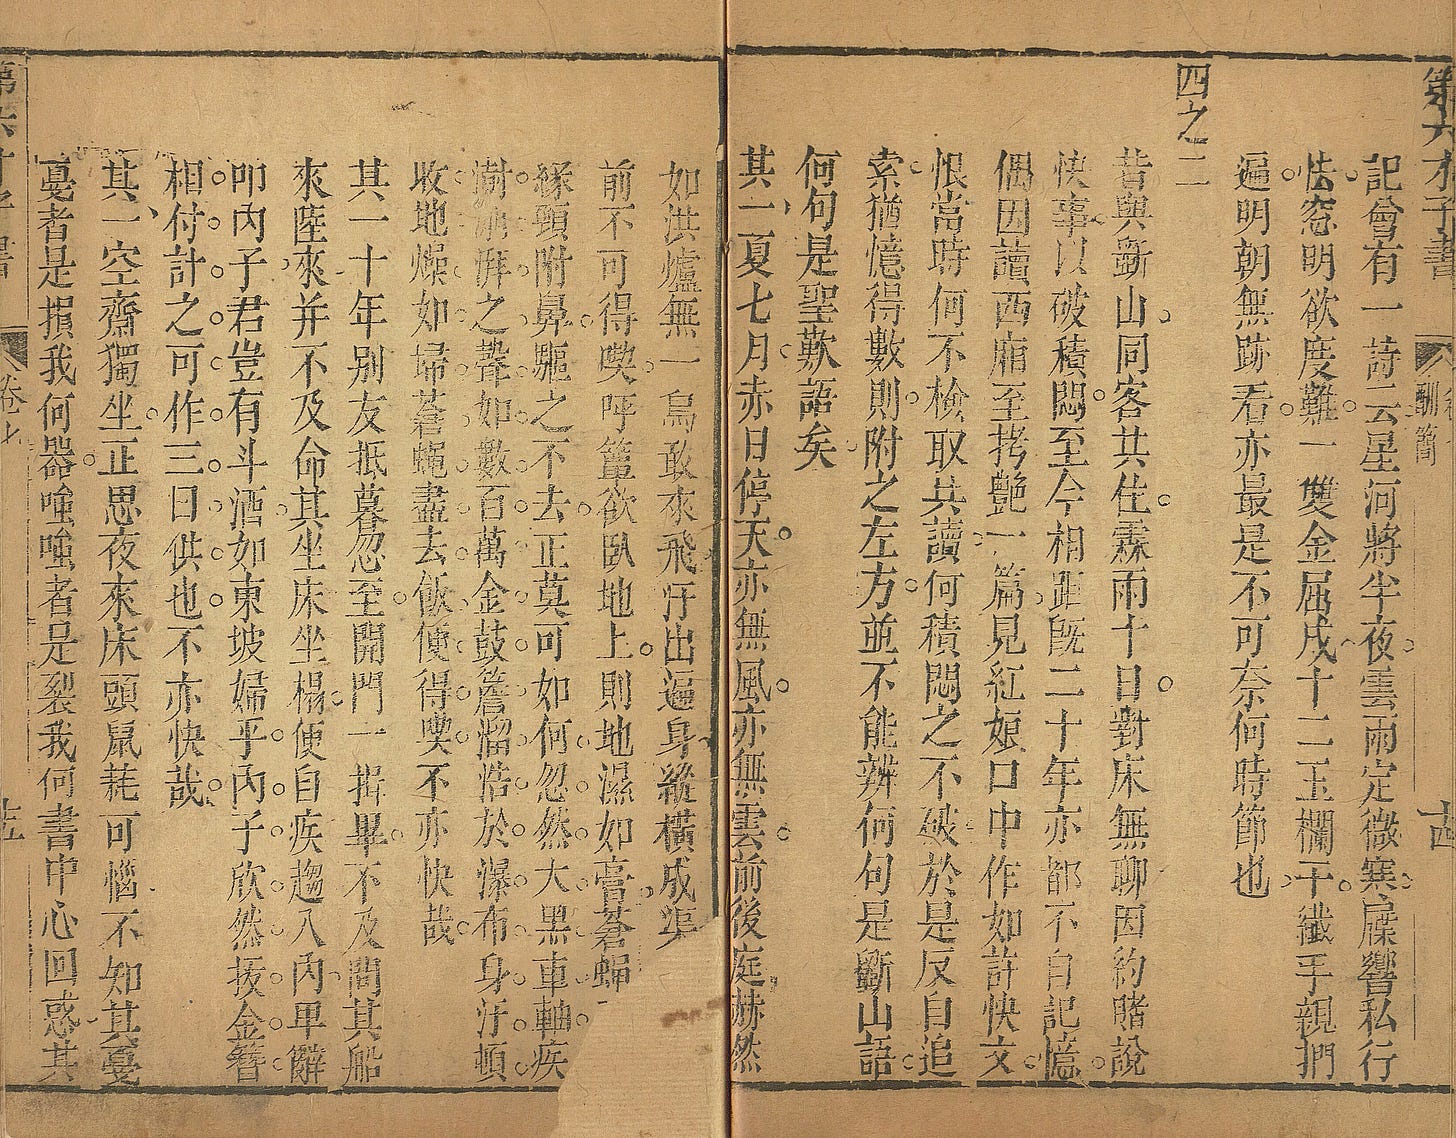 第六才子書
酬簡
十四
記曾有一詩云星河將半夜雲雨定微寒屧響私行
怯窓明欲度難一雙金屈戌十二玉欄干纖手親捫
遍明朝無跡看亦最是不可奈何時節也
四之二
昔與斵山同客共住霖雨十日對床無聊因約賭說
快事以破積悶至今相距旣二十年亦都不自記憶
偶因讀西廂至拷艶一篇見紅娘口中作如許快文
恨當時何不檢取共讀何積悶之不破於是反自追
索猶憶得數則附之左方並不能辨何句是斵山語
何句是聖歎語矣
其一夏七月赤日停天亦無風亦無雲前後庭赫然
如洪爐無一鳥敢來飛汗出遍身縱橫成渠
前不可得喫呼簟欲臥地上則地濕如膏蒼蝇
緣頸附鼻驅之不去正莫可如何忽然大黑車軸疾
澍澎湃之聲如數百萬金鼓簷溜浩於瀑布身汗頓
收地燥如掃蒼蝇盡去飯便得喫不亦快哉
其一十年别友抵暮忽至開門一揖畢不及問其船
來陸來并不及命其坐床坐榻便自疾趨入內卑辭
叩內子君豈有斗酒如東坡婦乎內子欣然拔金簪
相付計之可作三日供也不亦快哉
其一空齋獨坐正思夜來床頭鼠耗可惱不知其戞
戞者是損我何器嗤嗤者是裂我何書中心回惑其
第六才子書
卷七
十五